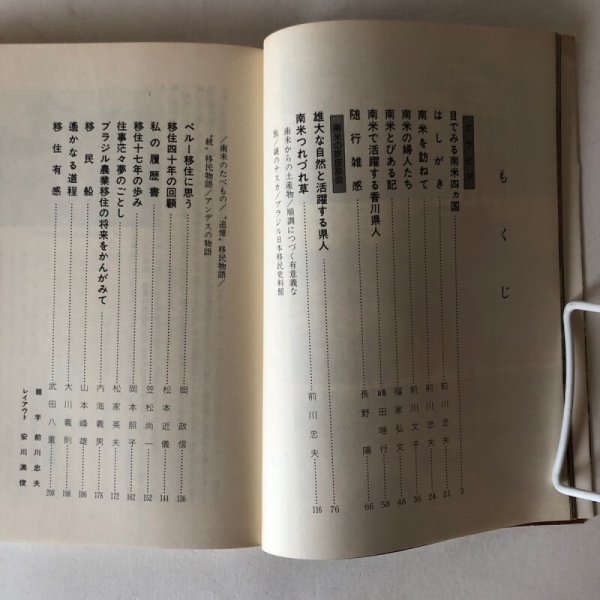 もくじ
グラビア
目でみる南米四ヵ国 3
はしがき 前川忠夫 21
南米を訪ねて 前川忠夫 24
南米の婦人たち 前川文子 36
南米とびある記 福家弘文 48
南米で活躍する香川県人 嶋田唯行 58
随行雑感 長野 陽 66
雄大な自然と活躍する県人 76
南米つれづれ草 前川忠夫 116
南米からの土産物／順調につづく有意義な
旅／謎のナスカ／ブラジル日本移民史料館
／南米のたべもの／〝追憶〟移民物語／
〝続〟移民物語／アンデスの物語
ペルー移住に思う 岡 政信 136
移住四十年の回顧 松本近儀 144
私の履歴書 笠松尚一 152
移住十七年の歩み 岡本照子 162
往事茫々夢のごとし 松家英夫 172
ブラジル農業移住の将来をかんがみて 内海義男 178
移民船 山本峰雄 186
遙かなる道程 大川義則 198
移住有感 武田八重 208
題字 前川忠夫
レイアウト 安川満俊